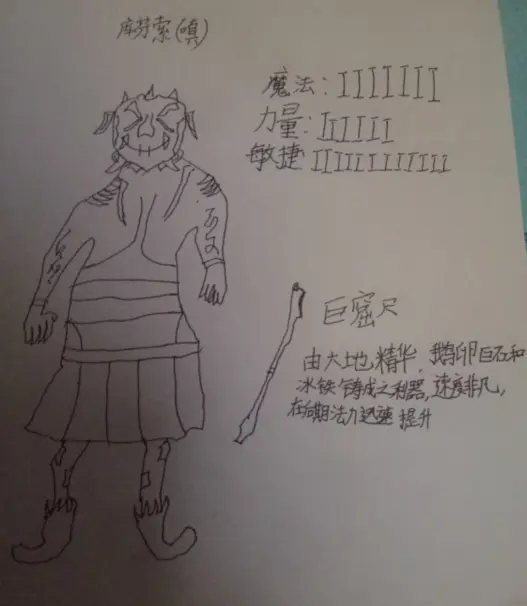 库芬索(嗔)
魔法: IIIIIII
力量: IIIIII
敏捷 IIIIIIIIIII
巨窟尺
由大地精华,鹅卵巨石和
冰铁铸成之利器,速度非凡,
在后期法力迅速提升